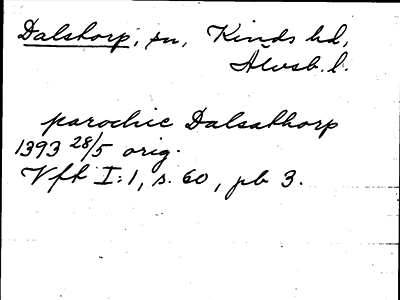 Dalstorp, sn, Kinds hd,
Älvsb. l.
parochie Dalsathorp
1393 28/5 orig.
Vft I:1, s. 60, pb 3.